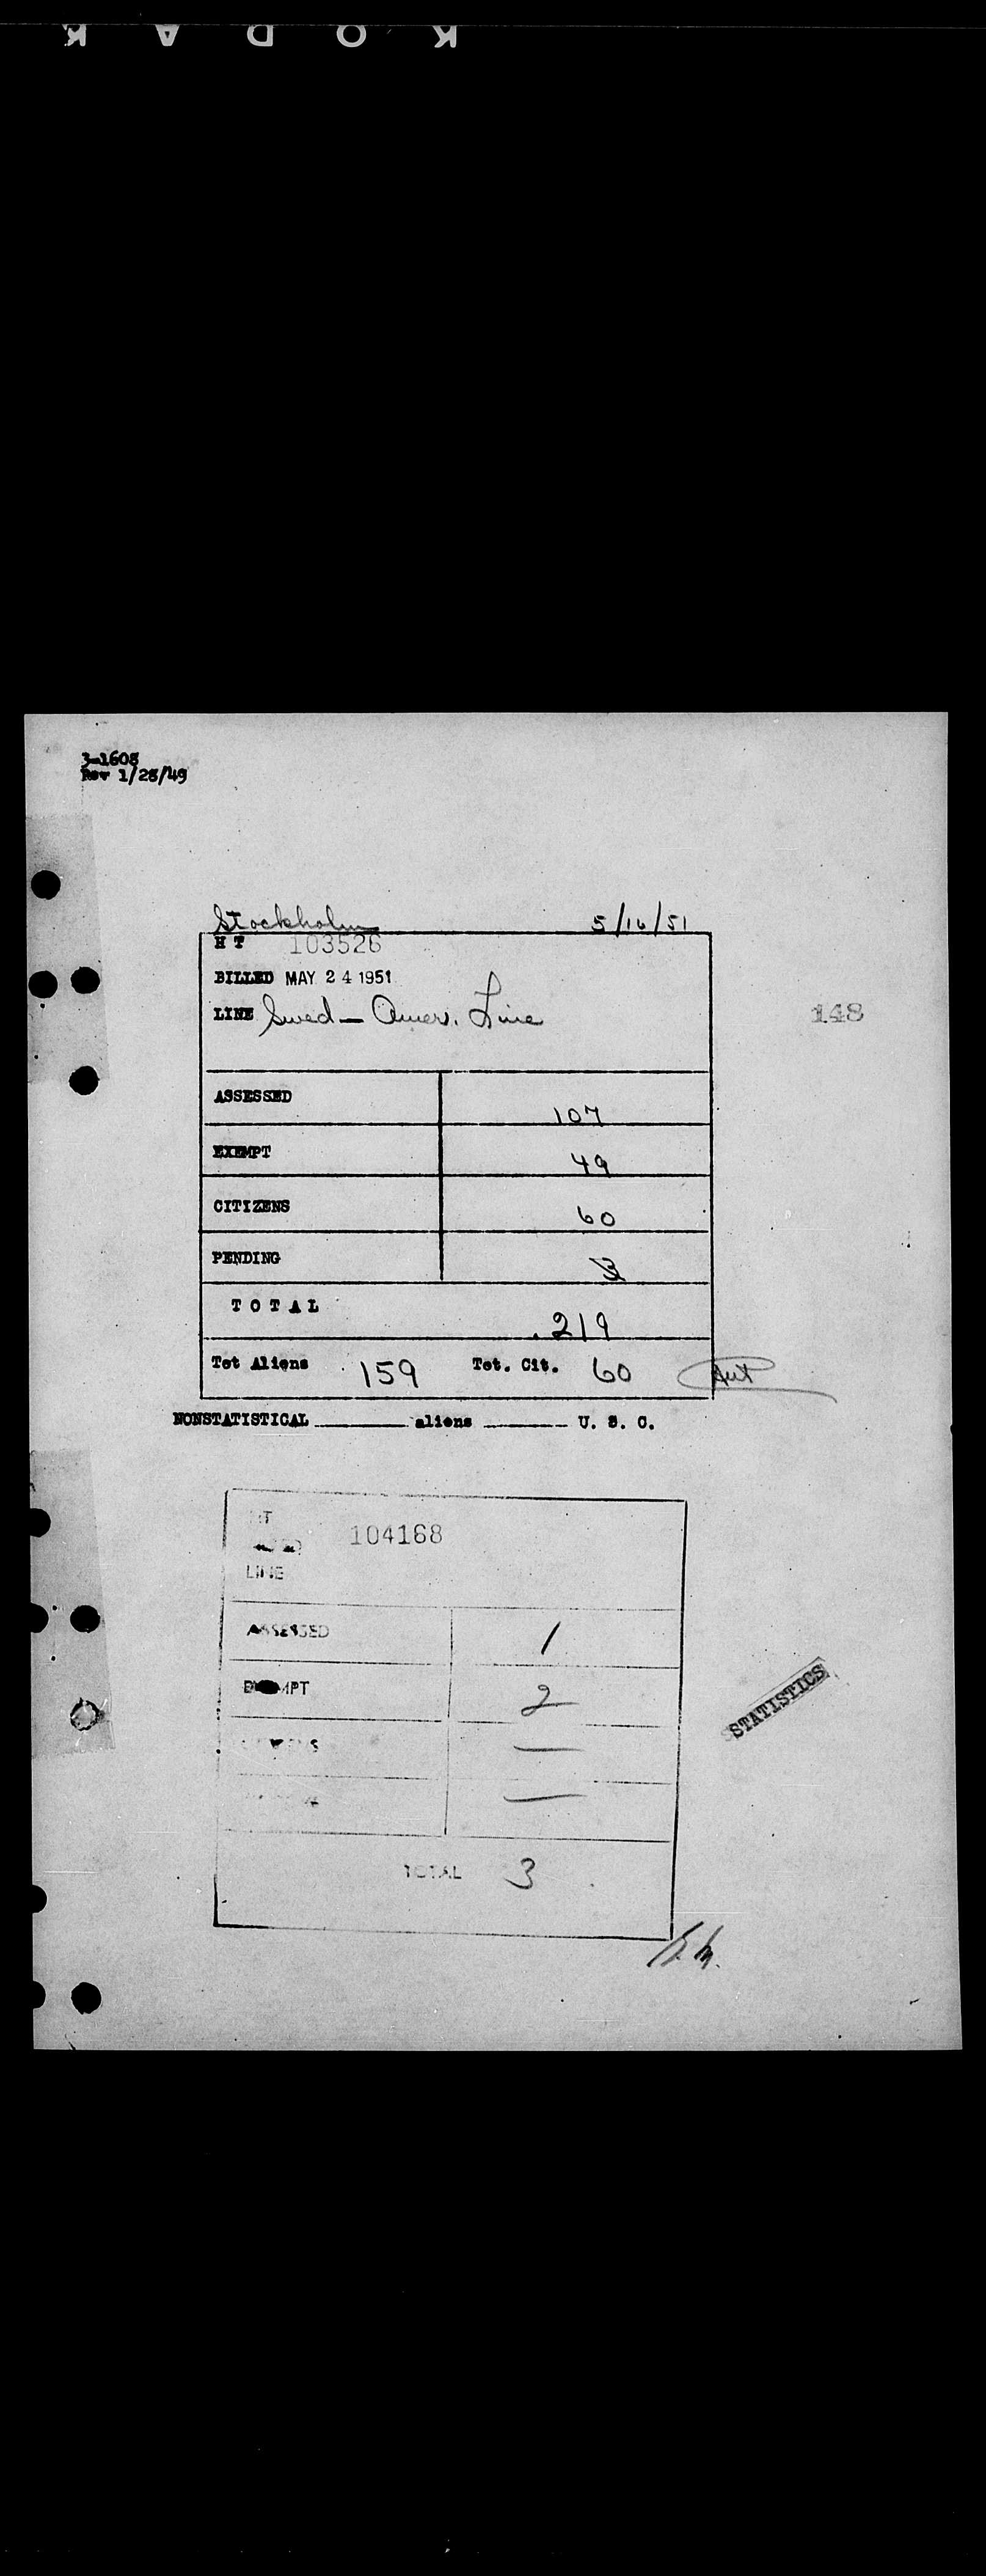 KODAK
3-1608
Rev 1/28/49
Stockholm 5/16/51
H T 103526
BILLED MAY 24 1951
LINE Swed - Amer. Line
148
ASSESSED 107
EXEMPT 49
CITIZENS 60
PENDING 3
TOTAL 219
Tot Aliens 159 Tot. Cit. 60
NONSTATISTICAL ______ aliens ______ U. S. C.
HT 104168
LINE
ASSESSED 1
EXEMPT 2
STATISTICS
—
—
TOTAL 3